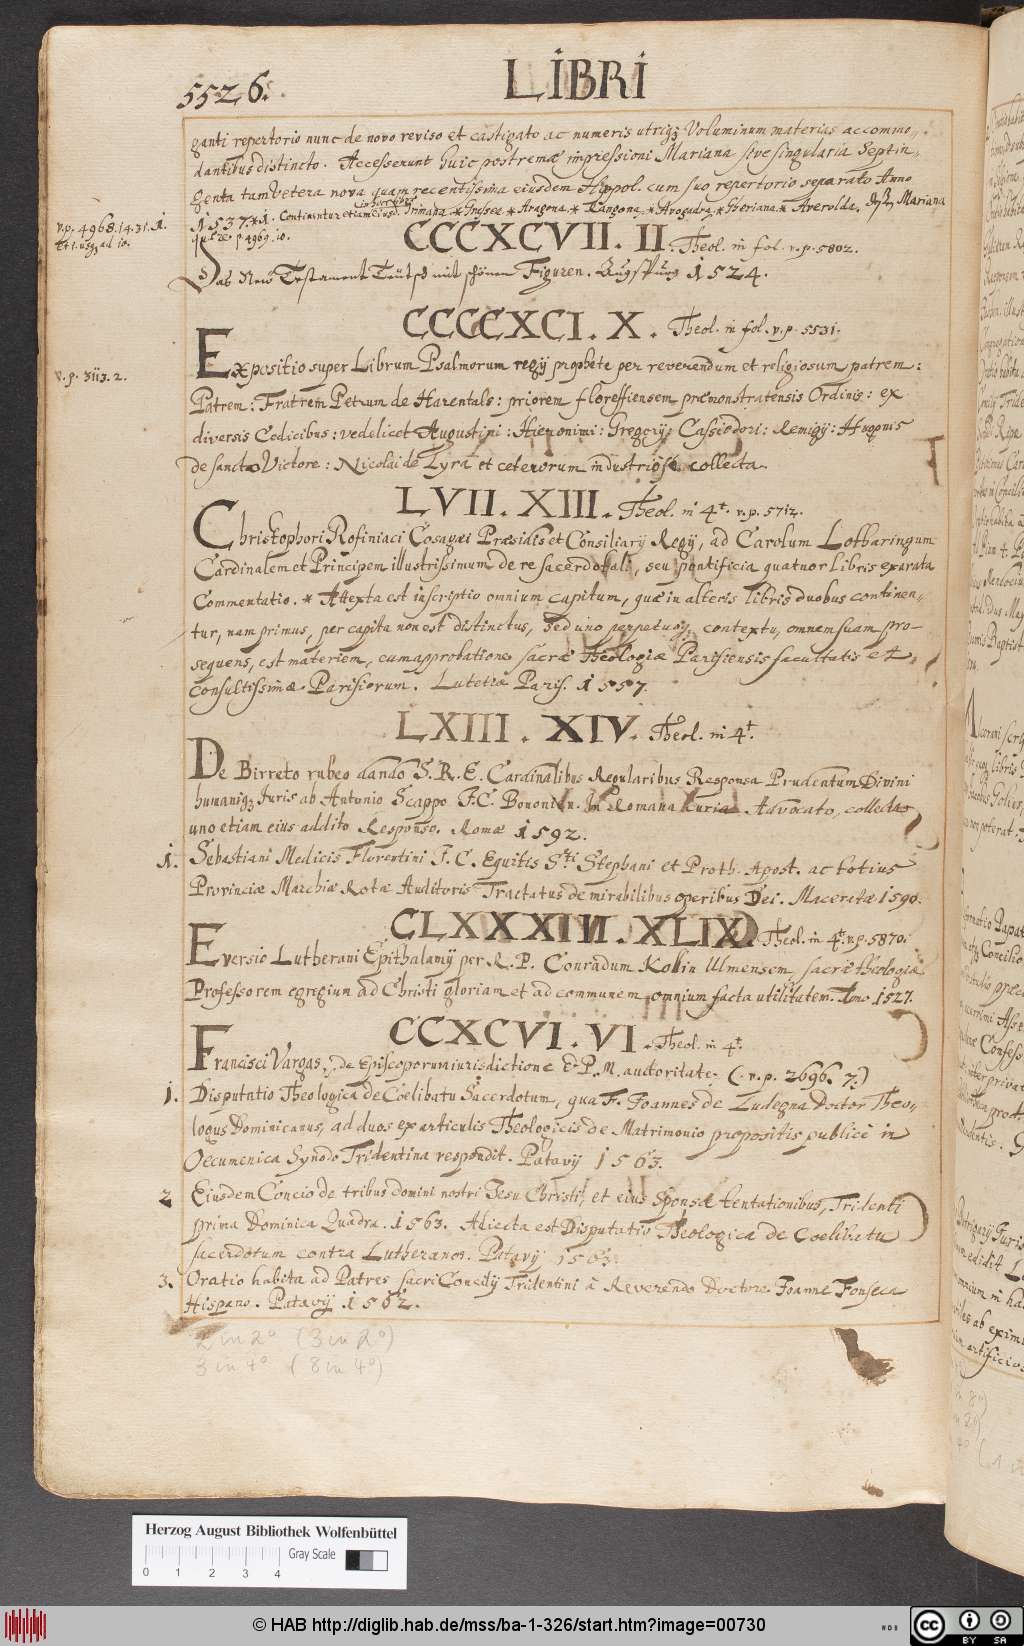 5526.
LIBRI
ganti repertorio nunc de novo reviso et castigato ac numeris utriqz Voluminum materias accommo-
dantibus distincto. Accesserunt huic postremæ impressioni Mariana sive singularia Septin-
genta tam vetera nova quam recentissima eiusdem Hippol. cum suo repertorio separato Anno
1537. *1. Continentur etiam eiusd. Primana * Grassea * Aragona * * Avogadra * Iberiana * Averolda. Mariana
v.p. 4968.14.31.1.
p. 4969. 10.
CCCXCVII. II. Theol. in fol. v.p. 5802.
Das New Testament Teütsch mit schönen Figuren. Augspurg 1524.
CCCCXCI. X. Theol. in fol. v.p. 5531.
v.p. 3113.2.
Expositio super Librum Psalmorum regij prophete per reverendum et religiosum patrem:
Patrem: Fratrem Petrum de Harentals: priorem floreffiensem præmonstratensis Ordinis: ex
diversis Codicibus: vedelicet Augustini: Hieronimi: Gregorij: Cassiodori: Remigij: Hugonis
de sancto Victore: Nicolai de Lyra et ceterorum industriose collecta.
LVII. XIII. Theol. in 4t. v.p. 5712.
Christophori Rofiniaci Cosagæi Præsidis et Consiliarij Regij, ad Carolum Lotharingum
Cardinalem et Principem illustrissimum de re sacerdotali, seu pontificia quatuor Libris exarata
Commentatio. * Attexta est inscriptio omnium capitum, quæ in alteris libris duobus continen-
tur, nam primus, per capita non est distinctus, sed uno perpetuoqz contextu, omnem suam pro-
sequens, est materiem, cum approbatione sacræ Theologiæ Parisiensis facultatis et
consultissimæ Parisiorum. Lutetiæ Paris. 1557.
LXIII. XIV. Theol. in 4t.
De Birreto rubeo dando S. R. E. Cardinalibus Regularibus Responsa Prudentum Divini
humaniqz Iuris ab Antonio Scappo J. C. Bononien. In Romana Curia Advocato, collecta
uno etiam eius addito Responso. Romæ 1592.
1. Sebastiani Medicis Florentini J. C. Equitis Sti Stephani et Proth. Apost. ac totius
Provinciæ Marchiæ Rotæ Auditoris Tractatus de mirabilibus operibus Dei. Maceratæ 1590.
CLXXXIVI. XLIX. Theol. in 4t. v.p. 5870.
Eversio Lutherani Epithalamij per R. P. Conradum Kolin Ulmensem, sacræ theologiæ
Professorem egregium ad Christi gloriam et ad communem omnium facta utilitatem. Anno 1527.
CCXCVI. VI. Theol. in 4t.
Francisci Vargas, de Episcoporum iurisdictione & P. M. auctoritate. (. v.p. 2696. 7.)
1. Disputatio Theologica de Coelibatu Sacerdotum, qua F. Joannes de Ludegna Doctor Theo-
logus Dominicanus, ad duos ex articulis Theologicis de Matrimonio propositis publice in
Oecumenica Synodo Tridentina respondit. Patavij 1563.
2 Eiusdem Concio de tribus domini nostri Jesu Christi, et eius Sponsæ tentationibus, Tridenti
prima Dominica Quadra. 1563. Adiecta est Disputatio Theologica de Coelibatu
sacerdotum contra Lutheranos. Patavij 1563.
3. Oratio habita ad Patres sacri Concilij Tridentini à Reverendo Doctore Joanne Fonseca
Hispano. Patavij 1562.
2 in 2° (3 in 2°)
3 in 4° (8 in 4°)
Herzog August Bibliothek Wolfenbüttel
Gray Scale
0 1 2 3 4
© HAB http://diglib.hab.de/mss/ba-1-326/start.htm?image=00730
cc BY SA